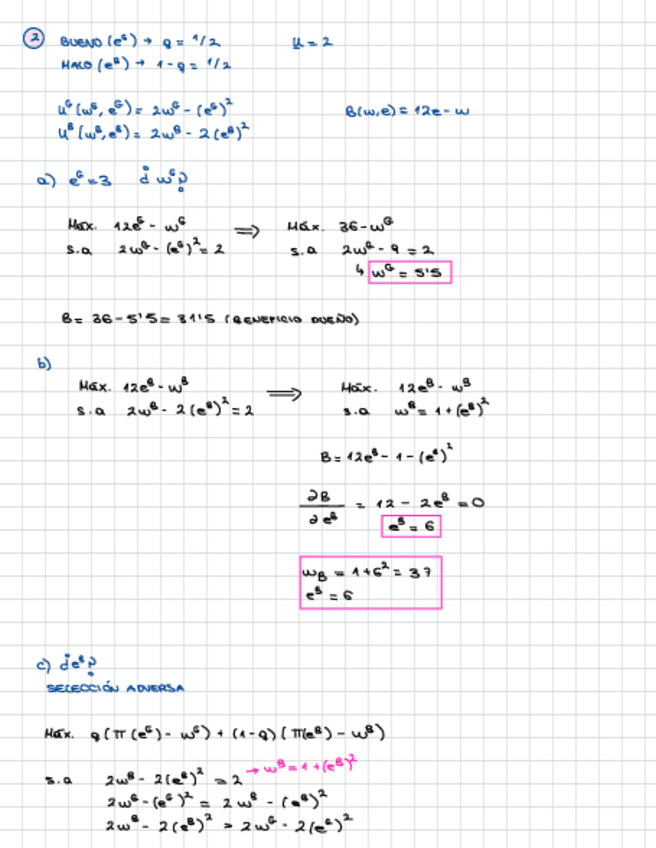 2 BUENO (e^G) → q = 1/2 u = 2
MALO (e^B) → 1-q = 1/2
U^G (w^G, e^G) = 2w^G - (e^G)^2 B(w,e) = 12e - w
U^B (w^B, e^B) = 2w^B - 2(e^B)^2
a) e^G = 3 ¿w^G?
Máx. 12e^G - w^G ⟹ Máx. 36 - w^G
s.a 2w^G - (e^G)^2 = 2 s.a 2w^G - 9 = 2
↳ w^G = 5'5
B = 36 - 5'5 = 31'5 (BENEFICIO DUEÑO)
b)
Máx. 12e^B - w^B ⟹ Máx. 12e^B - w^B
s.a 2w^B - 2(e^B)^2 = 2 s.a w^B = 1 + (e^B)^2
B = 12e^B - 1 - (e^B)^2
∂B / ∂e^B = 12 - 2e^B = 0
e^B = 6
w_B = 1 + 6^2 = 37
e^B = 6
c) ¿e^B?
SELECCIÓN ADVERSA
Máx. q(π(e^G) - w^G) + (1-q)(π(e^B) - w^B)
s.a 2w^B - 2(e^B)^2 = 2 → w^B = 1 + (e^B)^2
2w^G - (e^G)^2 = 2w^B - (e^B)^2
2w^B - 2(e^B)^2 > 2w^G - 2(e^G)^2